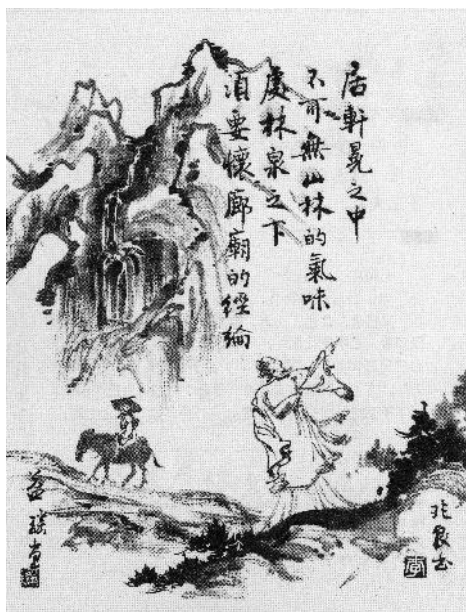 居軒冕之中
不可無山林的氣味
處林泉之下
須要懷廊廟的經綸